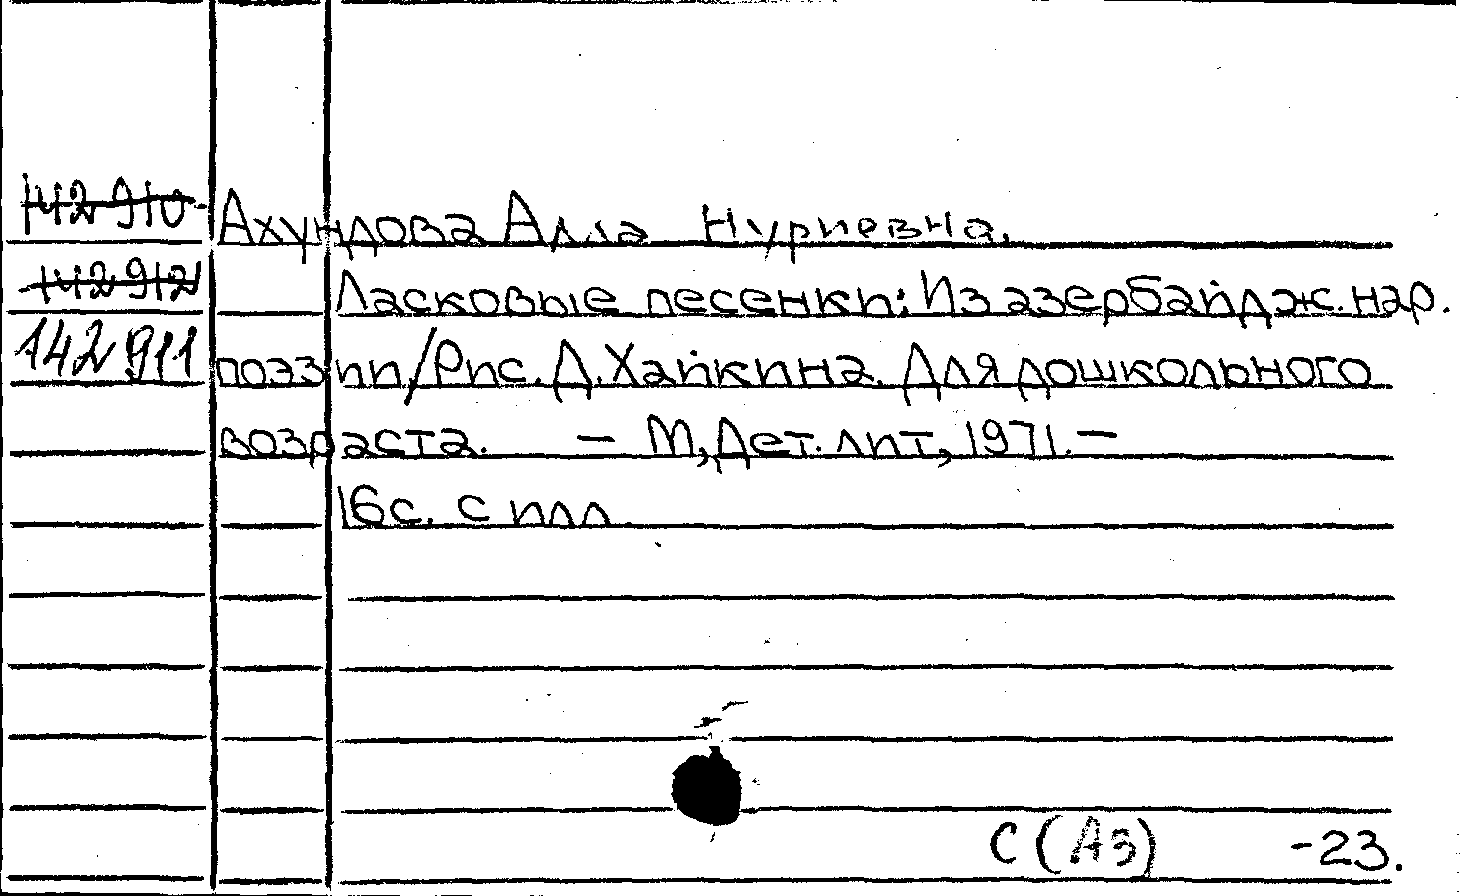 142 910 Ахундова Алла Нуриевна.
142 912 Ласковые песенки: Из азербайдж. нар.
142 911 поэзии/Рис. Д. Хайкина. Для дошкольного
возраста. — М, Дет. лит, 1971. —
16с. с илл.
С (Аз) -23.